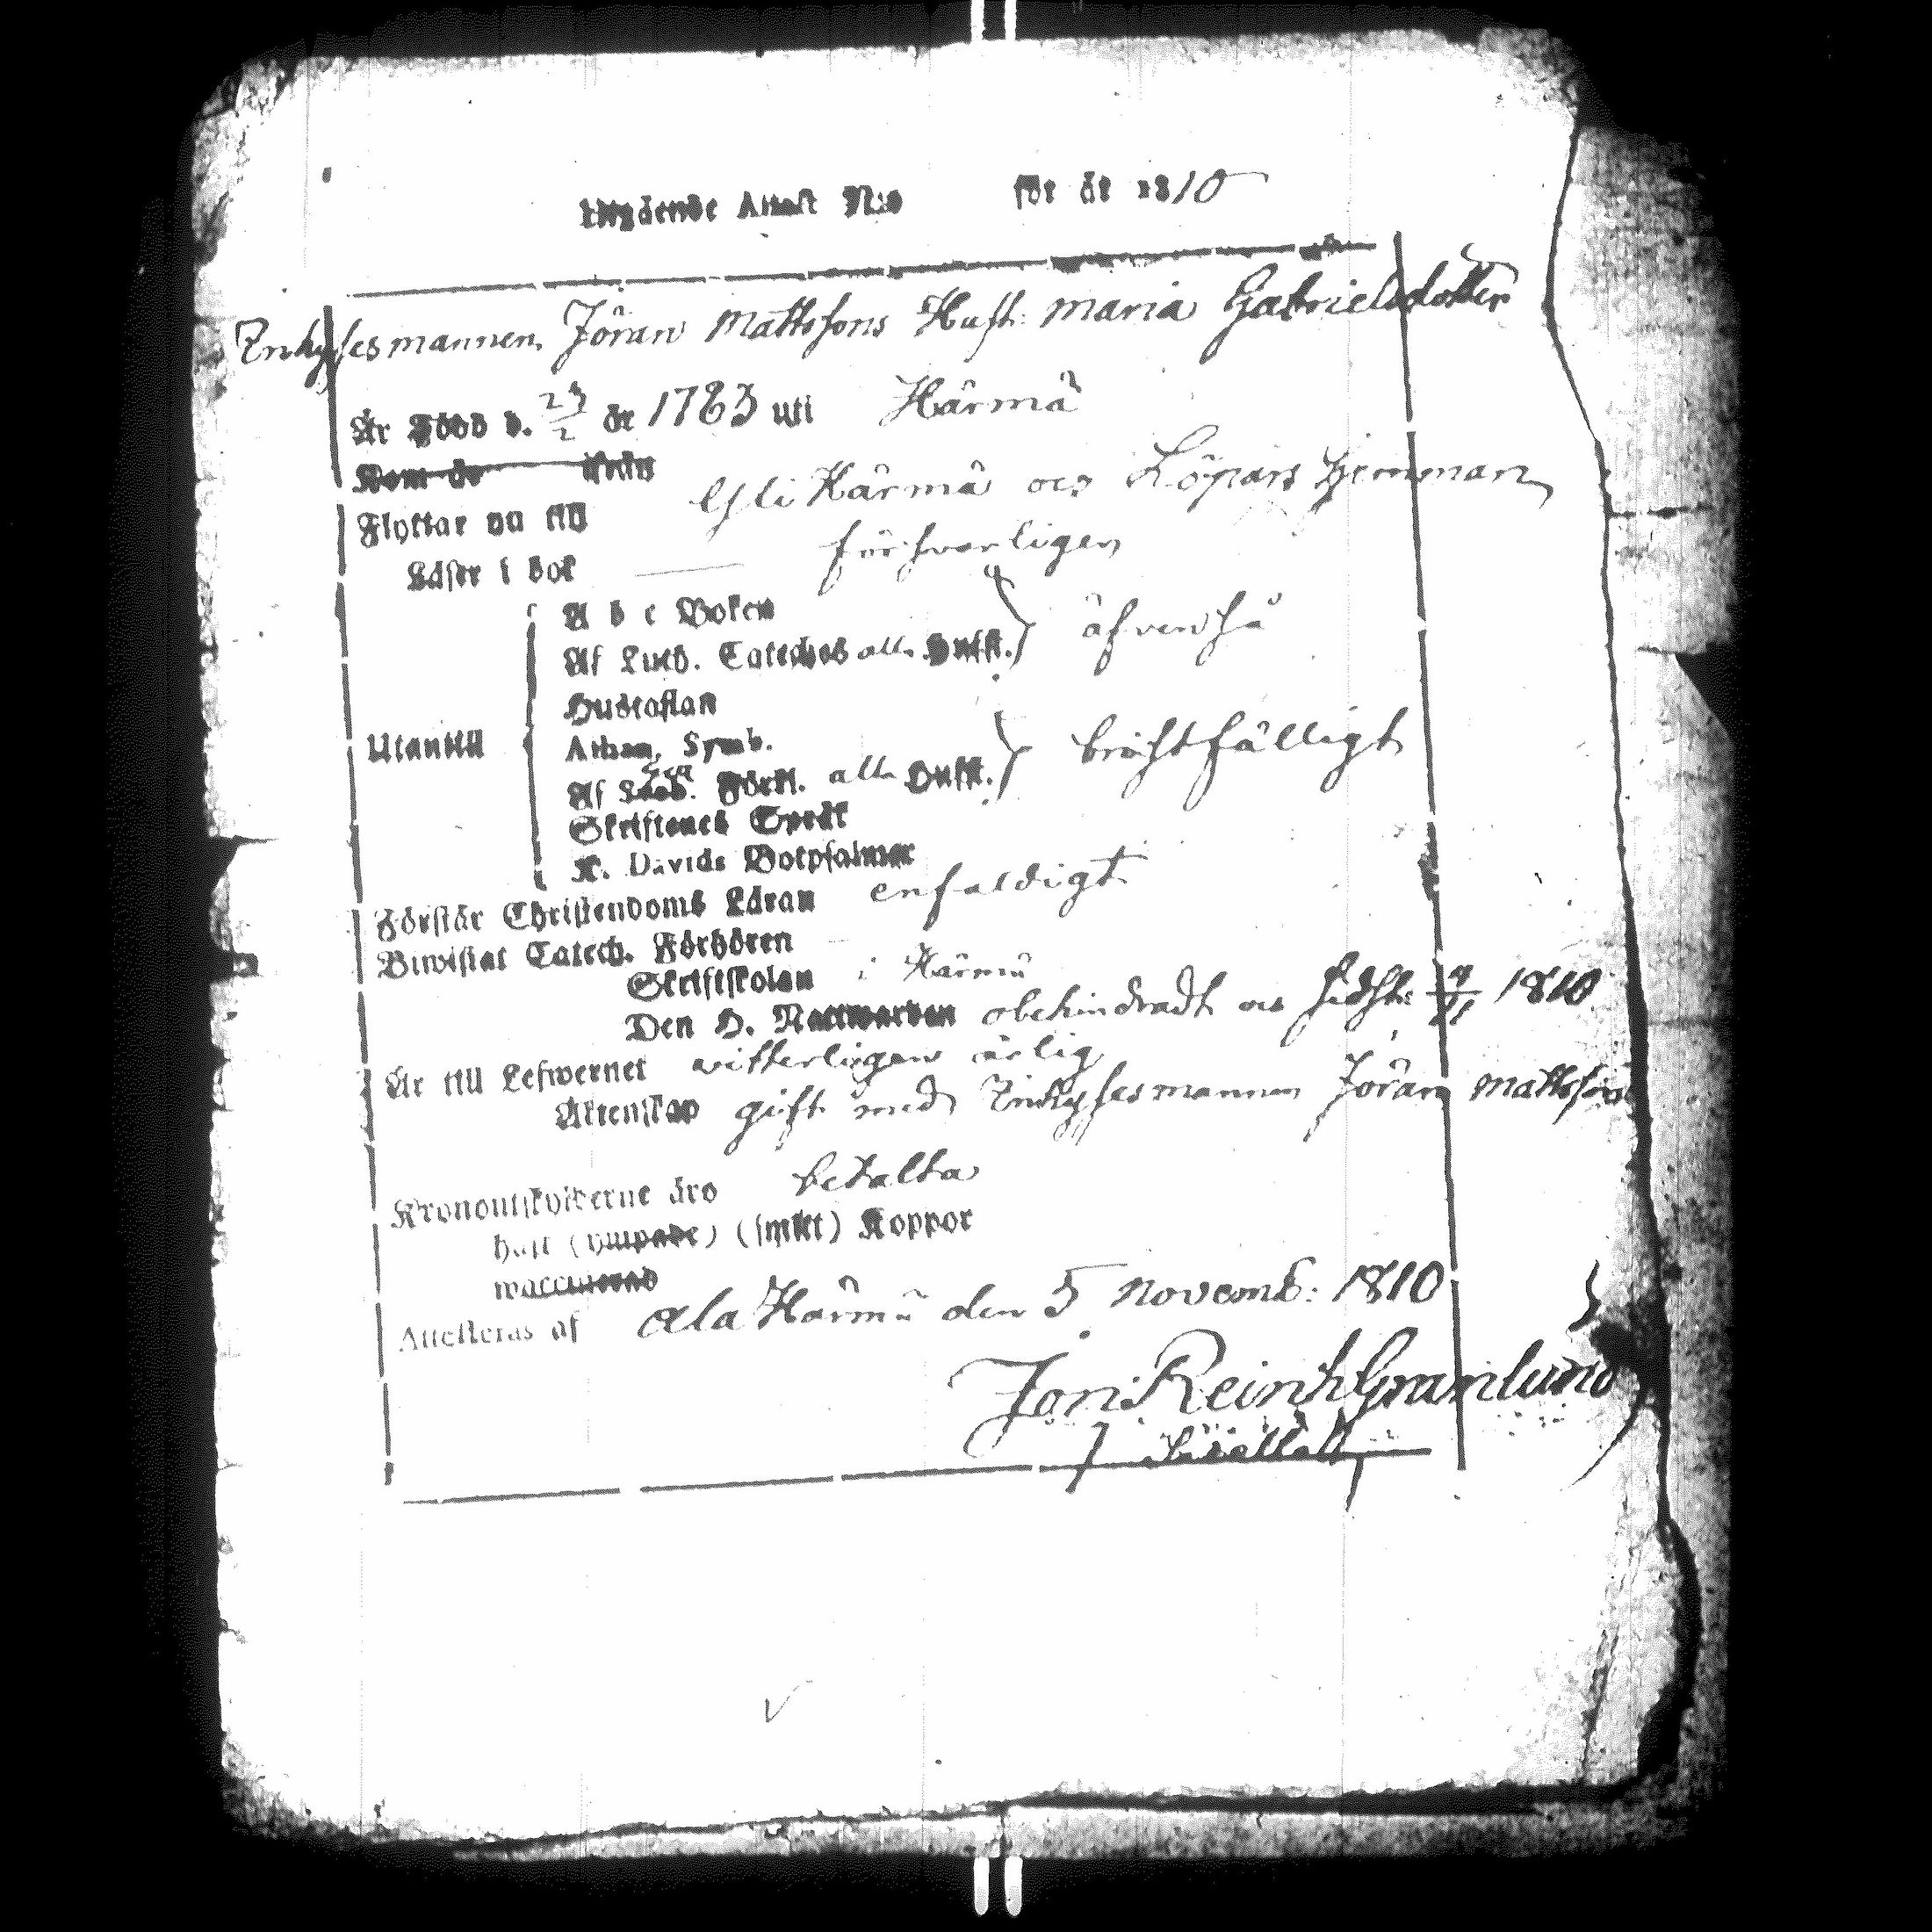 Utgående Attest N:o för år 1810
Inhysesmannen Jöran Mattssons Hust: Maria Gabrielsdotter
Är Född d. 23/2 år 1783 uti Härmä
Kom år ifrån
Flyttar nu till Yli Härmä och Löpars hemman
Läser i bok försvarligen
A b c Boken
Af Luth. Cateches alla Hufst. äfven så
Hustaflan
Utantill Athan. Symb.
Af Förkl. alla Hufst. bristfälligt
Skriftenes Språk
K. Davids Botpsalmer
Förstår Christendoms Läran enfaldigt
Biwistat Catech. Förhören
Skriftskolan i Härmä
Den H. Nattwarden obehindradt och sidst: 4/11 1810
Är till Lefwernet witterligen ärlig
Äktenskap gift med Inhysesmannen Jöran Mattsson
Kronoutskylderne äro betalta
haft (ympade) (smitt) Koppor
waccinerad
Attesteras af Ala Härmä den 5 Novemb: 1810
Jon: Reinh Granlund